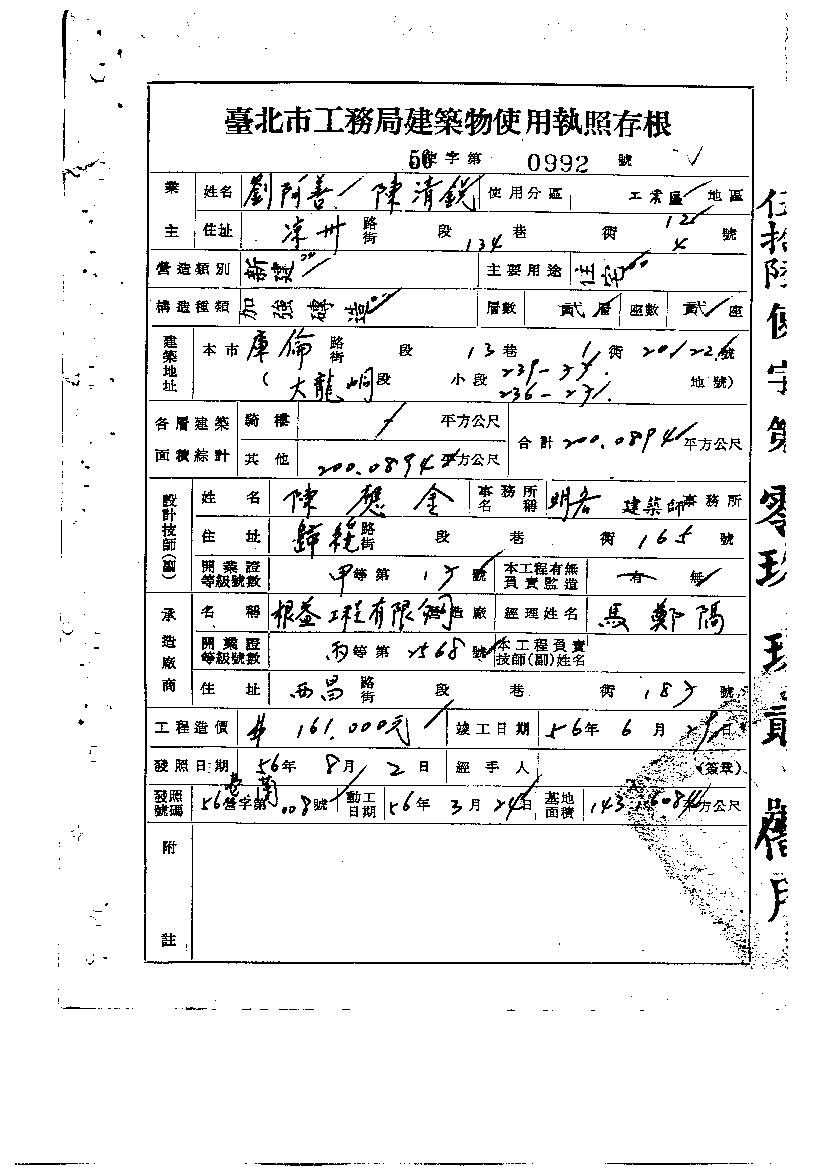 臺北市工務局建築物使用執照存根
56使字第 0992 號
業主 姓名 劉阿善 陳清銳 使用分區 工業區 地區
住址 涼州 路街 段 134 巷 衖 12 4 號
營造類別 新建 主要用途 住宅
構造種類 加強磚造 層數 貳層 座數 貳座
建築地址 本市 庫倫 路街 段 13 巷 1 衖 20 22 號
(大龍峒段 小段 239-25 236-23 地號)
各層建築面積綜計 騎樓 平方公尺 合計 200.0894 平方公尺
其他 200.0894 平方公尺
設計技師(副) 姓名 陳懋金 事務所名稱 建築師事務所
住址 歸綏 路街 段 巷 衖 165 號
開業證等級號數 甲等第 號 本工程有無負責監造 有 無
承造廠商 名稱 根益工程有限公司 營造廠 經理姓名 馬鄭陽
開業證等級號數 丙等第 2568 號 本工程負責技師(副)姓名
住址 西昌 路街 段 巷 衖 號
工程造價 161,000元 竣工日期 56年 6月 日
發照日期 56年 8月 2日 經手人 (簽章)
發照號碼 56營字第 008號 動工日期 56年 3月 24日 基地面積 平方公尺
附註
伍拾陸使字第零玖玖貳 舊